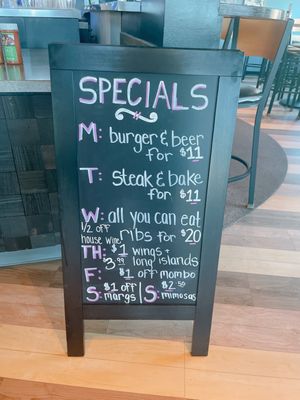 SPECIALS
M: burger & beer
for $11
T: steak & bake
for $11
W: all you can eat
1/2 off
house wine ribs for $20
TH: $1 wings +
$3.99 long islands
F: $1 off mambo
S: $1 off margs | S: $2.50 mimosas